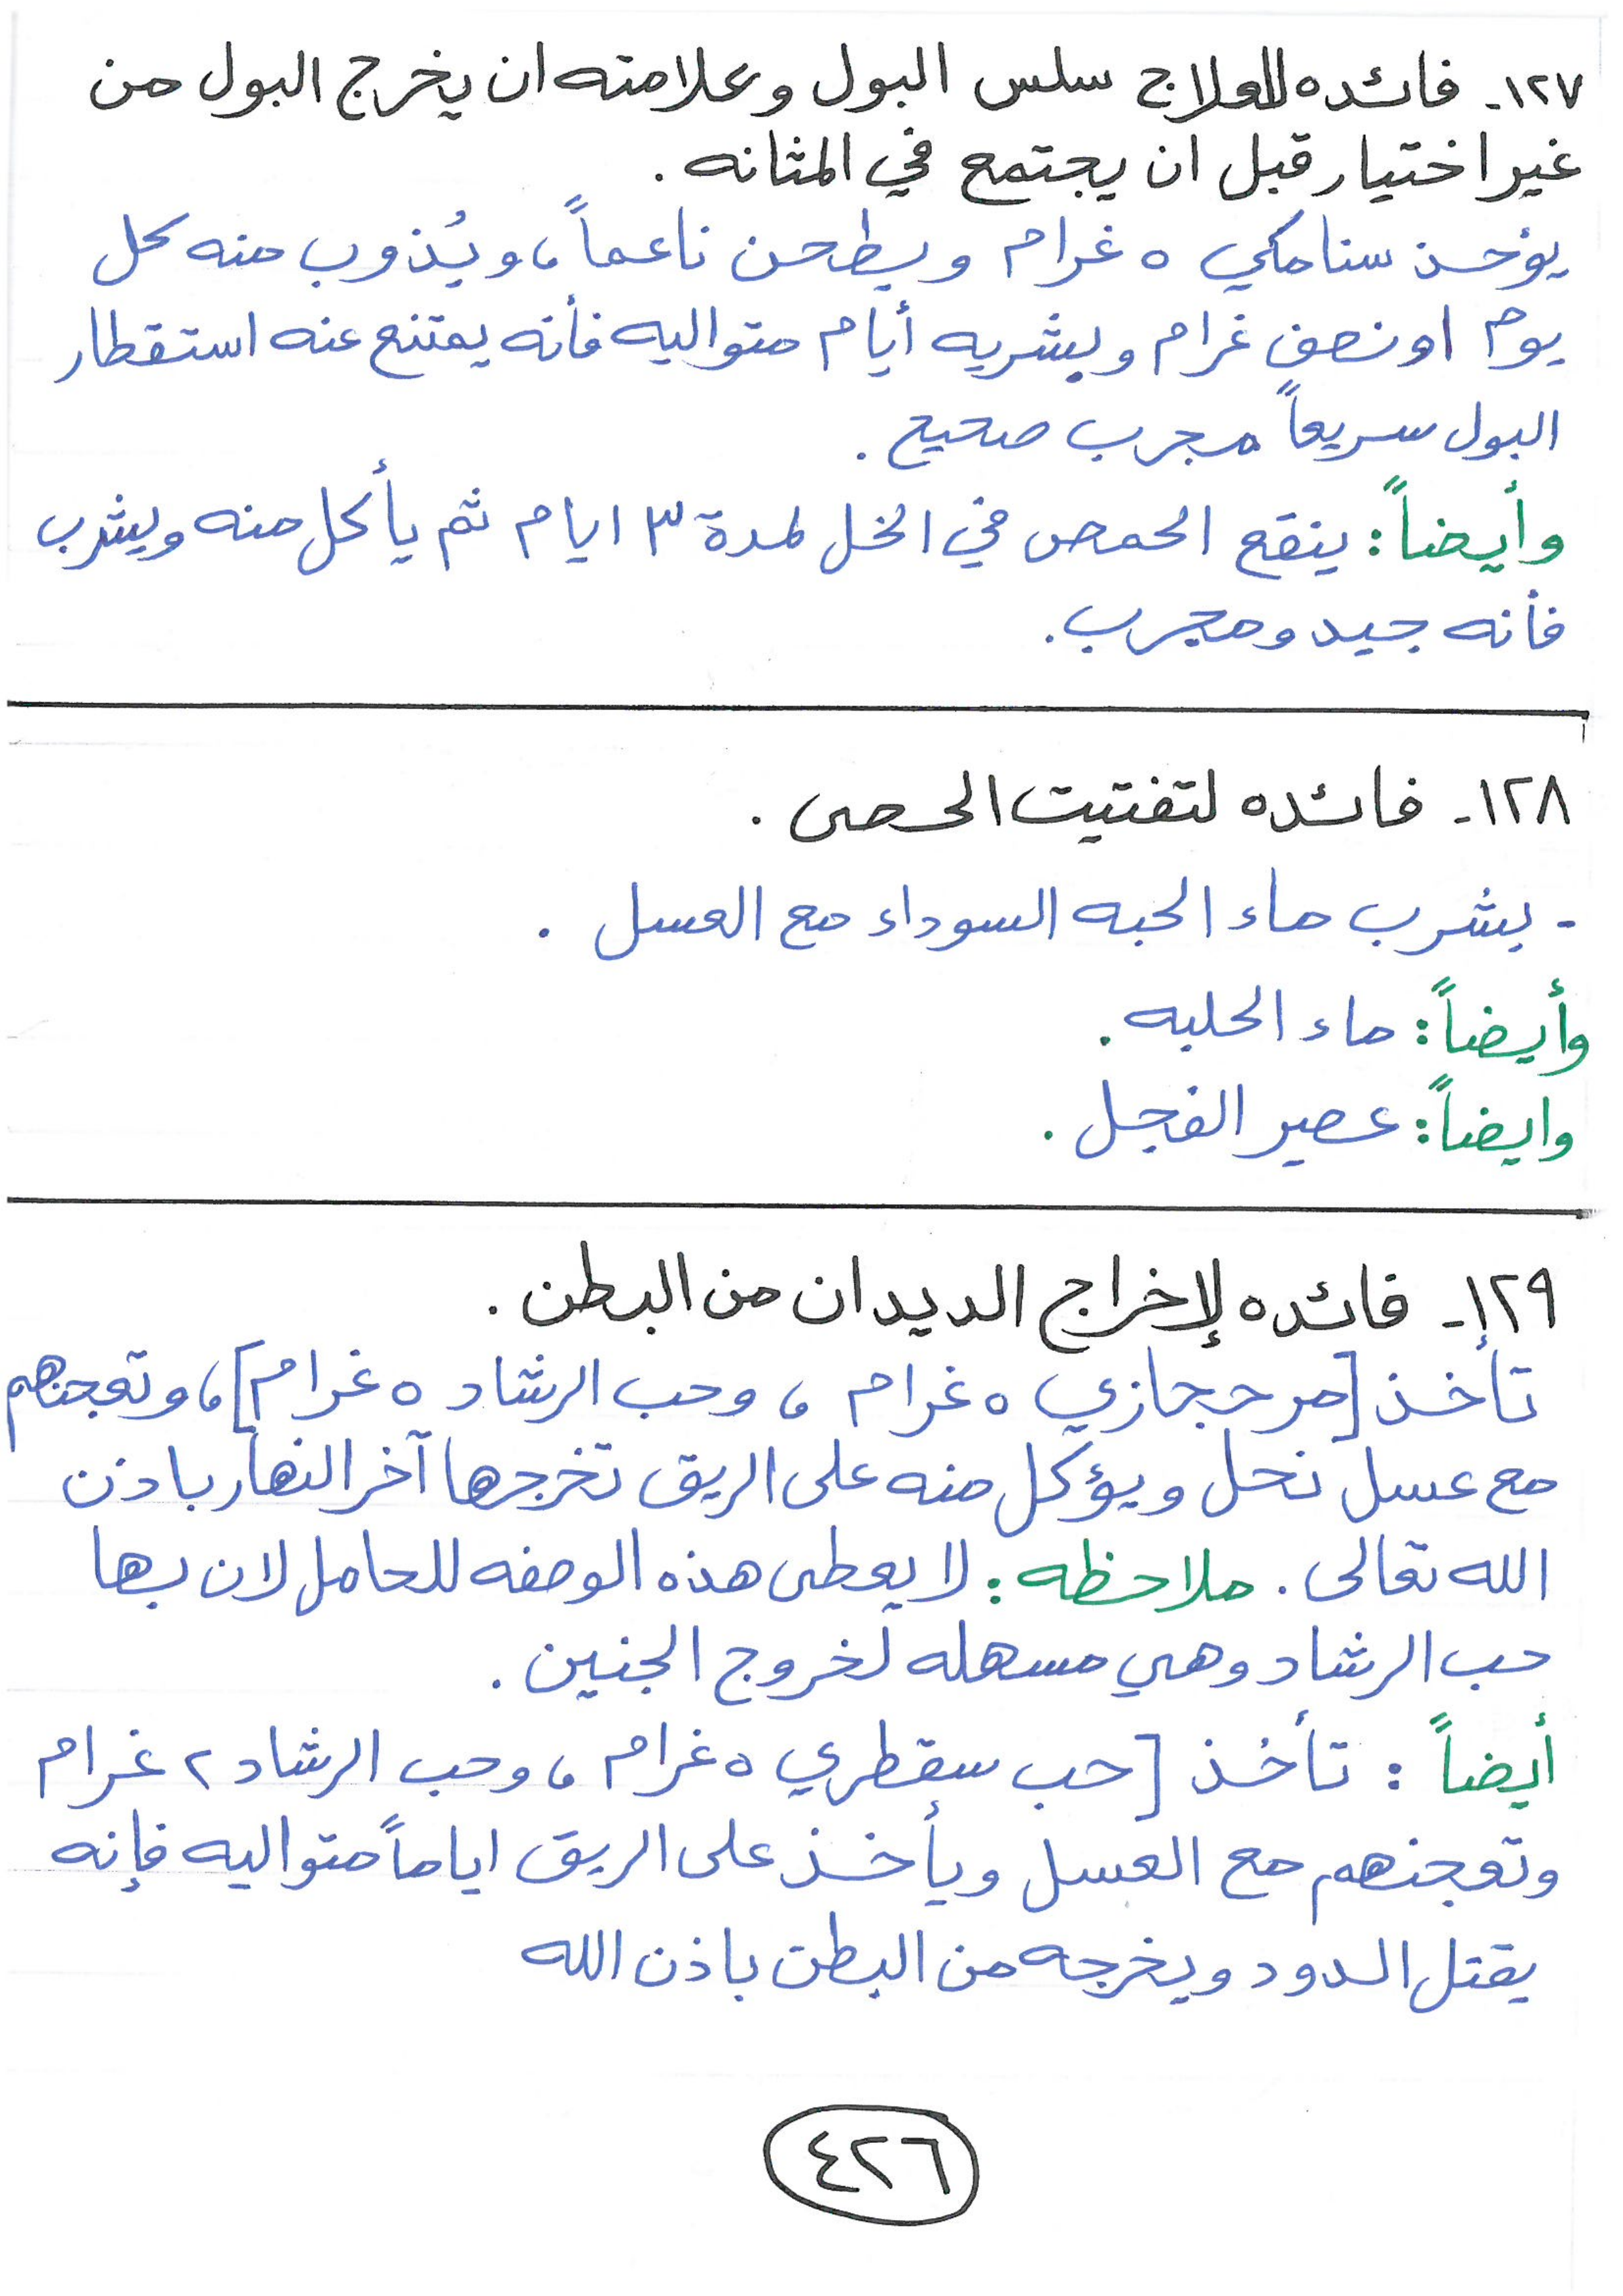 ١٢٧- فائده للعلاج سلس البول وعلامته ان يخرج البول من
غير اختيار قبل ان يجتمع في المثانه .
يؤخذ سنامكي ٥ غرام ويطحن ناعماً، ويُذوب منه كل
يوم او نصف غرام ويشربه أيام متواليه فأنه يمتنع عنه استقطار
البول سريعاً مجرب صحيح .
وأيضاً : ينقع الحمص في الخل لمدة ٣ ايام ثم يأكل منه ويشرب
فأنه جيد ومجرب .
١٢٨- فائده لتفتيت الحصى .
- يشرب ماء الحبه السوداء مع العسل .
وأيضاً : ماء الحلبه .
وايضاً : عصير الفجل .
١٢٩- فائده لإخراج الديدان من البطن .
تأخذ [مر حجازي ٥ غرام ، وحب الرشاد ٥ غرام]، وتعجنهم
مع عسل نحل ويؤكل منه على الريق تخرجها آخر النهار باذن
الله تعالى . ملاحظه : لا يعطى هذه الوصفه للحامل لان بها
حب الرشاد وهي مسهله لخروج الجنين .
أيضاً : تأخذ [حب سقطري ٥ غرام ، وحب الرشاد ٢ غرام
وتعجنهم مع العسل ويأخذ على الريق اياماً متواليه فإنه
يقتل الدود ويخرجه من البطن باذن الله
٤٢٦